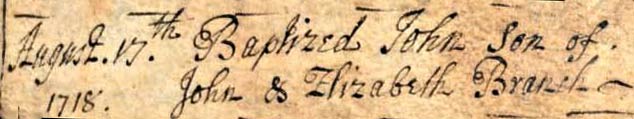 August. 17.th Baptized John Son of.
1718. John & Elizabeth Branch